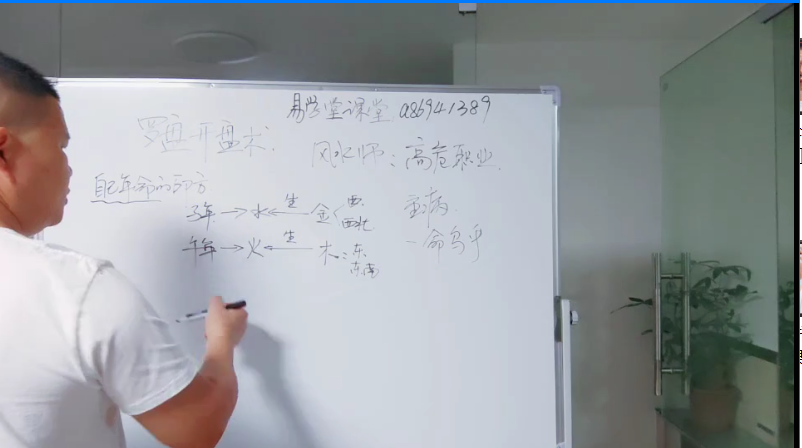 易学堂课堂 a86941389
罗盘开盘术.
风水师：高危职业.
自己年命的方
子年→水←生金＜西.西北
重病
午年→火←生木：东.东南
一命乌乎